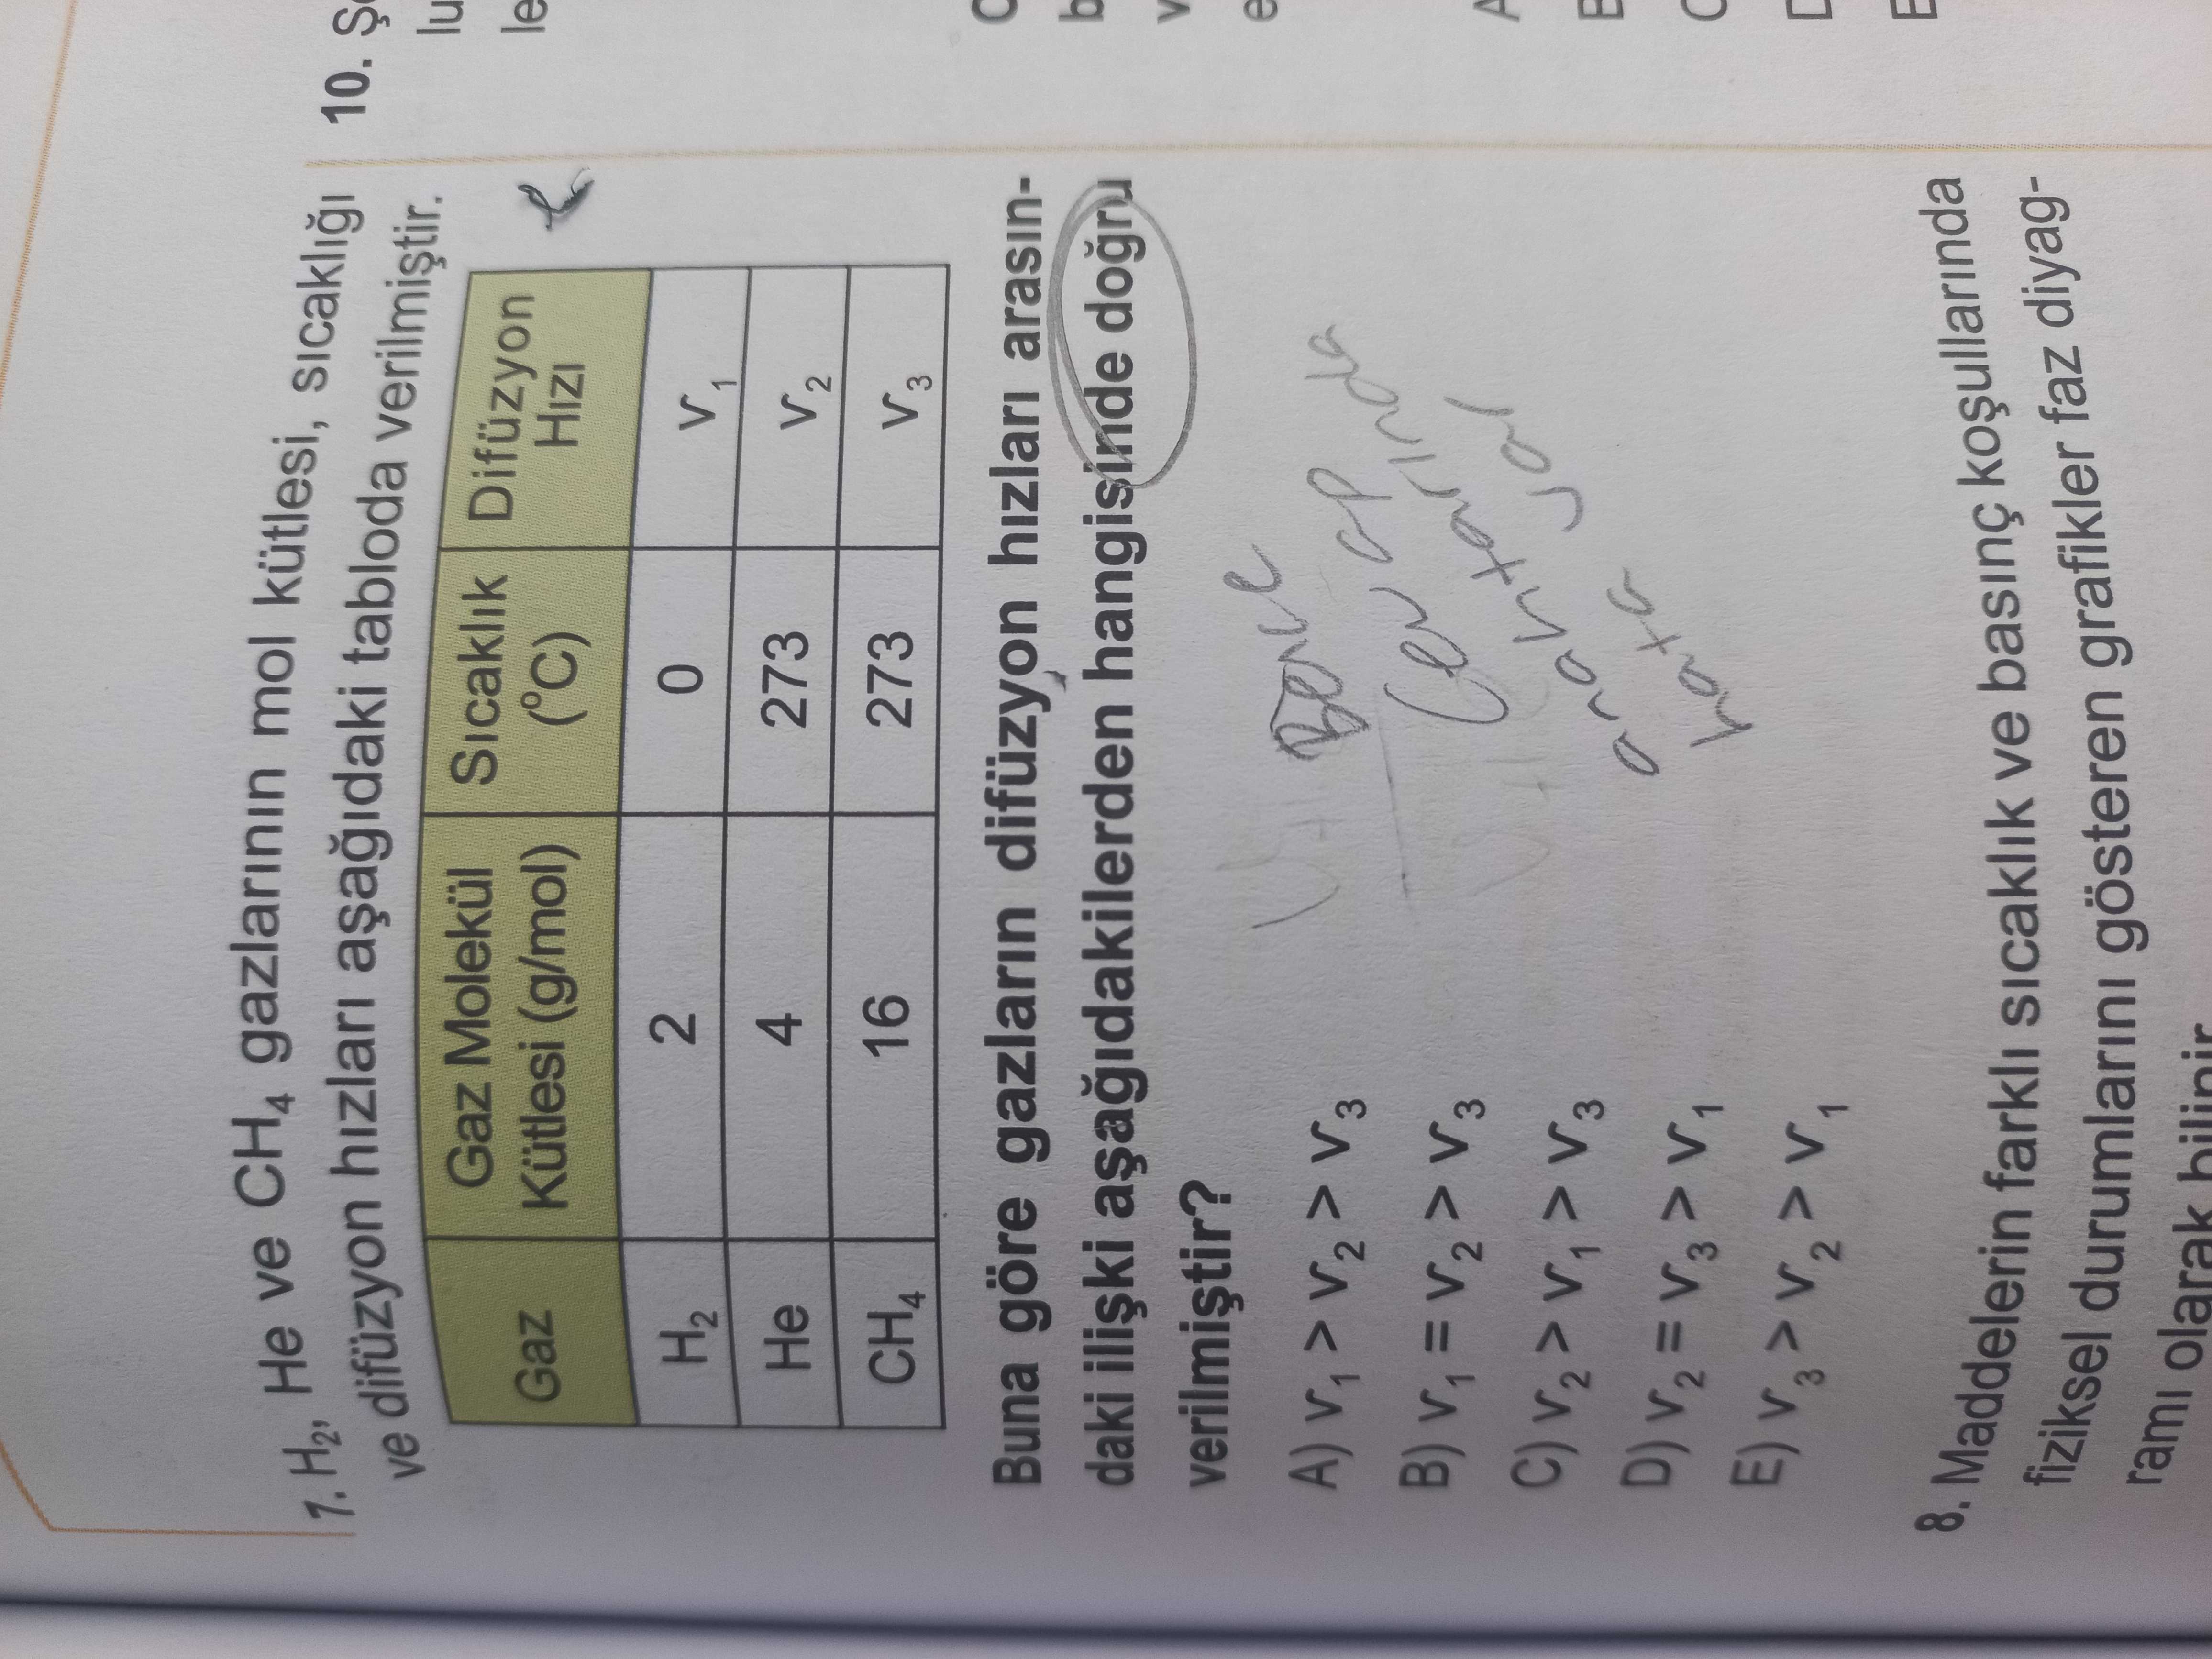 7. H₂, He ve CH₄ gazlarının mol kütlesi, sıcaklığı
ve difüzyon hızları aşağıdaki tabloda verilmiştir.
Gaz | Gaz Molekül Kütlesi (g/mol) | Sıcaklık (°C) | Difüzyon Hızı
H₂ | 2 | 0 | v₁
He | 4 | 273 | v₂
CH₄ | 16 | 273 | v₃
Buna göre gazların difüzyon hızları arasın-
daki ilişki aşağıdakilerden hangisinde doğru
verilmiştir?
A) v₁ > v₂ > v₃
B) v₁ = v₂ > v₃
C) v₂ > v₁ > v₃
D) v₂ = v₃ > v₁
E) v₃ > v₂ > v₁
Bence
Cevap
anahtarında
hata var
8. Maddelerin farklı sıcaklık ve basınç koşullarında
fiziksel durumlarını gösteren grafikler faz diyag-
ramı olarak bilinir
10. Ş
lu
le
b
v
e
A
B
C
D
E